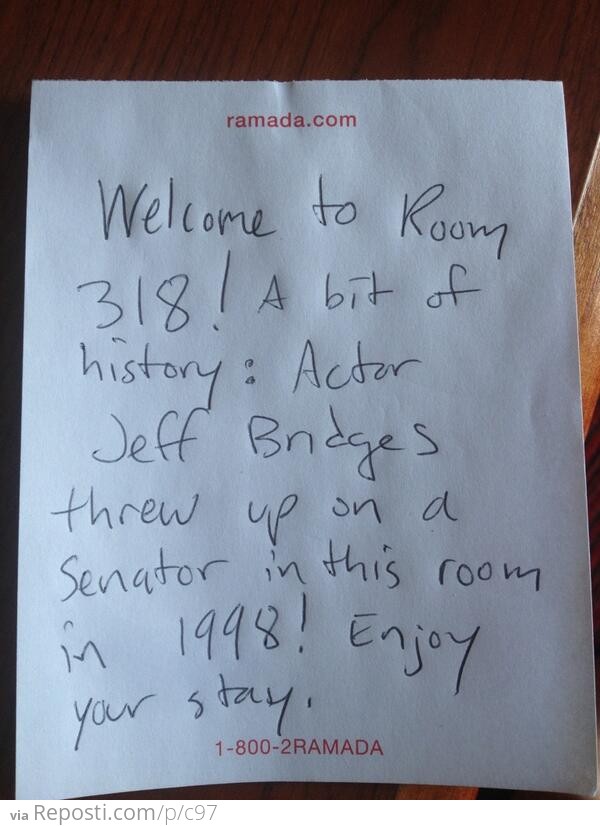 ramada.com
Welcome to Room
318! A bit of
history: Actor
Jeff Bridges
threw up on a
Senator in this room
in 1998! Enjoy
your stay.
1-800-2RAMADA
via Reposti.com/p/c97